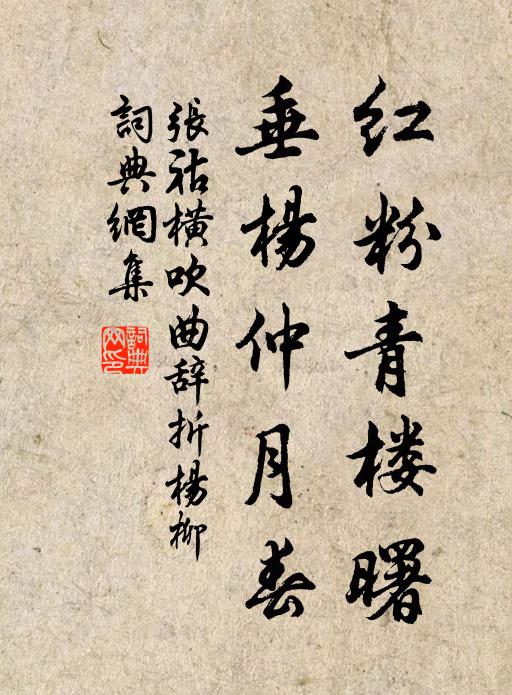 红粉青楼曙
垂楊仲月春
張祜橫吹曲辞折楊柳
詞典網集
詞典
网印